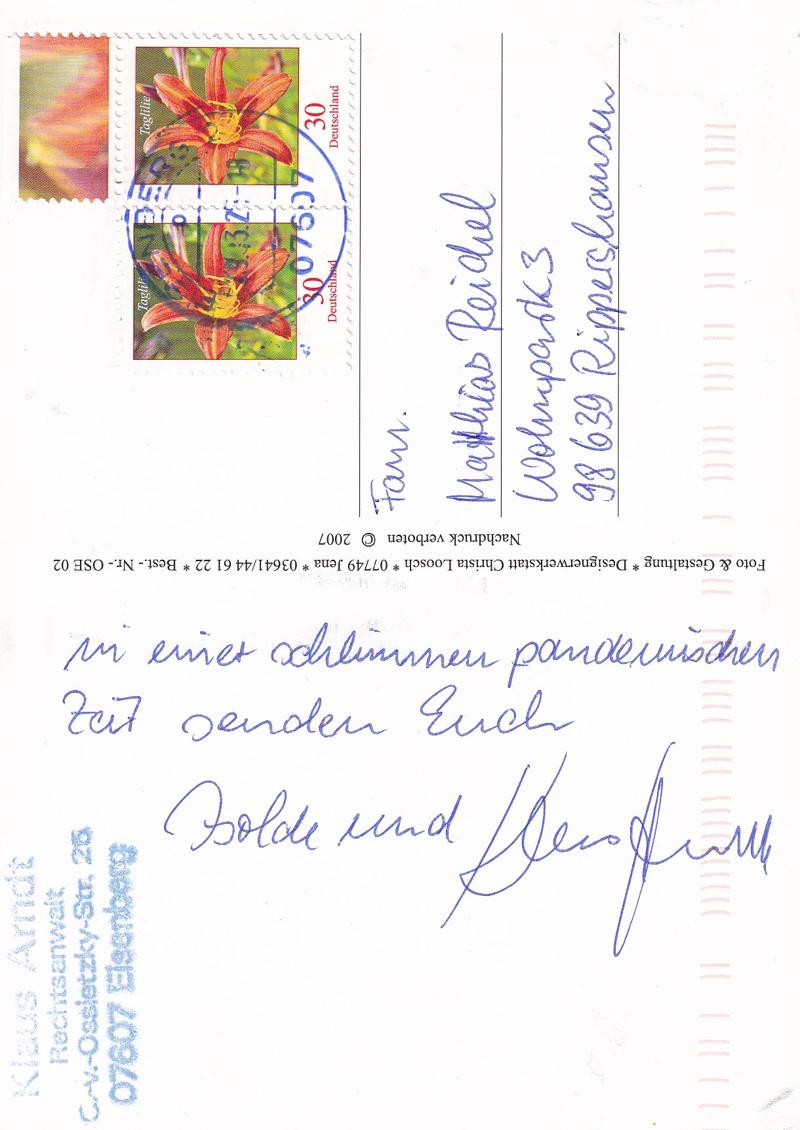 Taglilie
30
Deutschland
Taglilie
30
Deutschland
07607
Fam.
Matthias Reichel
Wohnpark 3
98639 Rippershausen
Nachdruck verboten © 2007
Foto & Gestaltung * Designerwerkstatt Christa Loosch * 07749 Jena * 03641/44 61 22 * Best.- Nr.- OSE 02
in einer schlimmen pandemischen
Zeit senden Euch
Isolde und Klaus Arndt
Klaus Arndt
Rechtsanwalt
C.-v.-Ossietzky-Str. 26
07607 Eisenberg